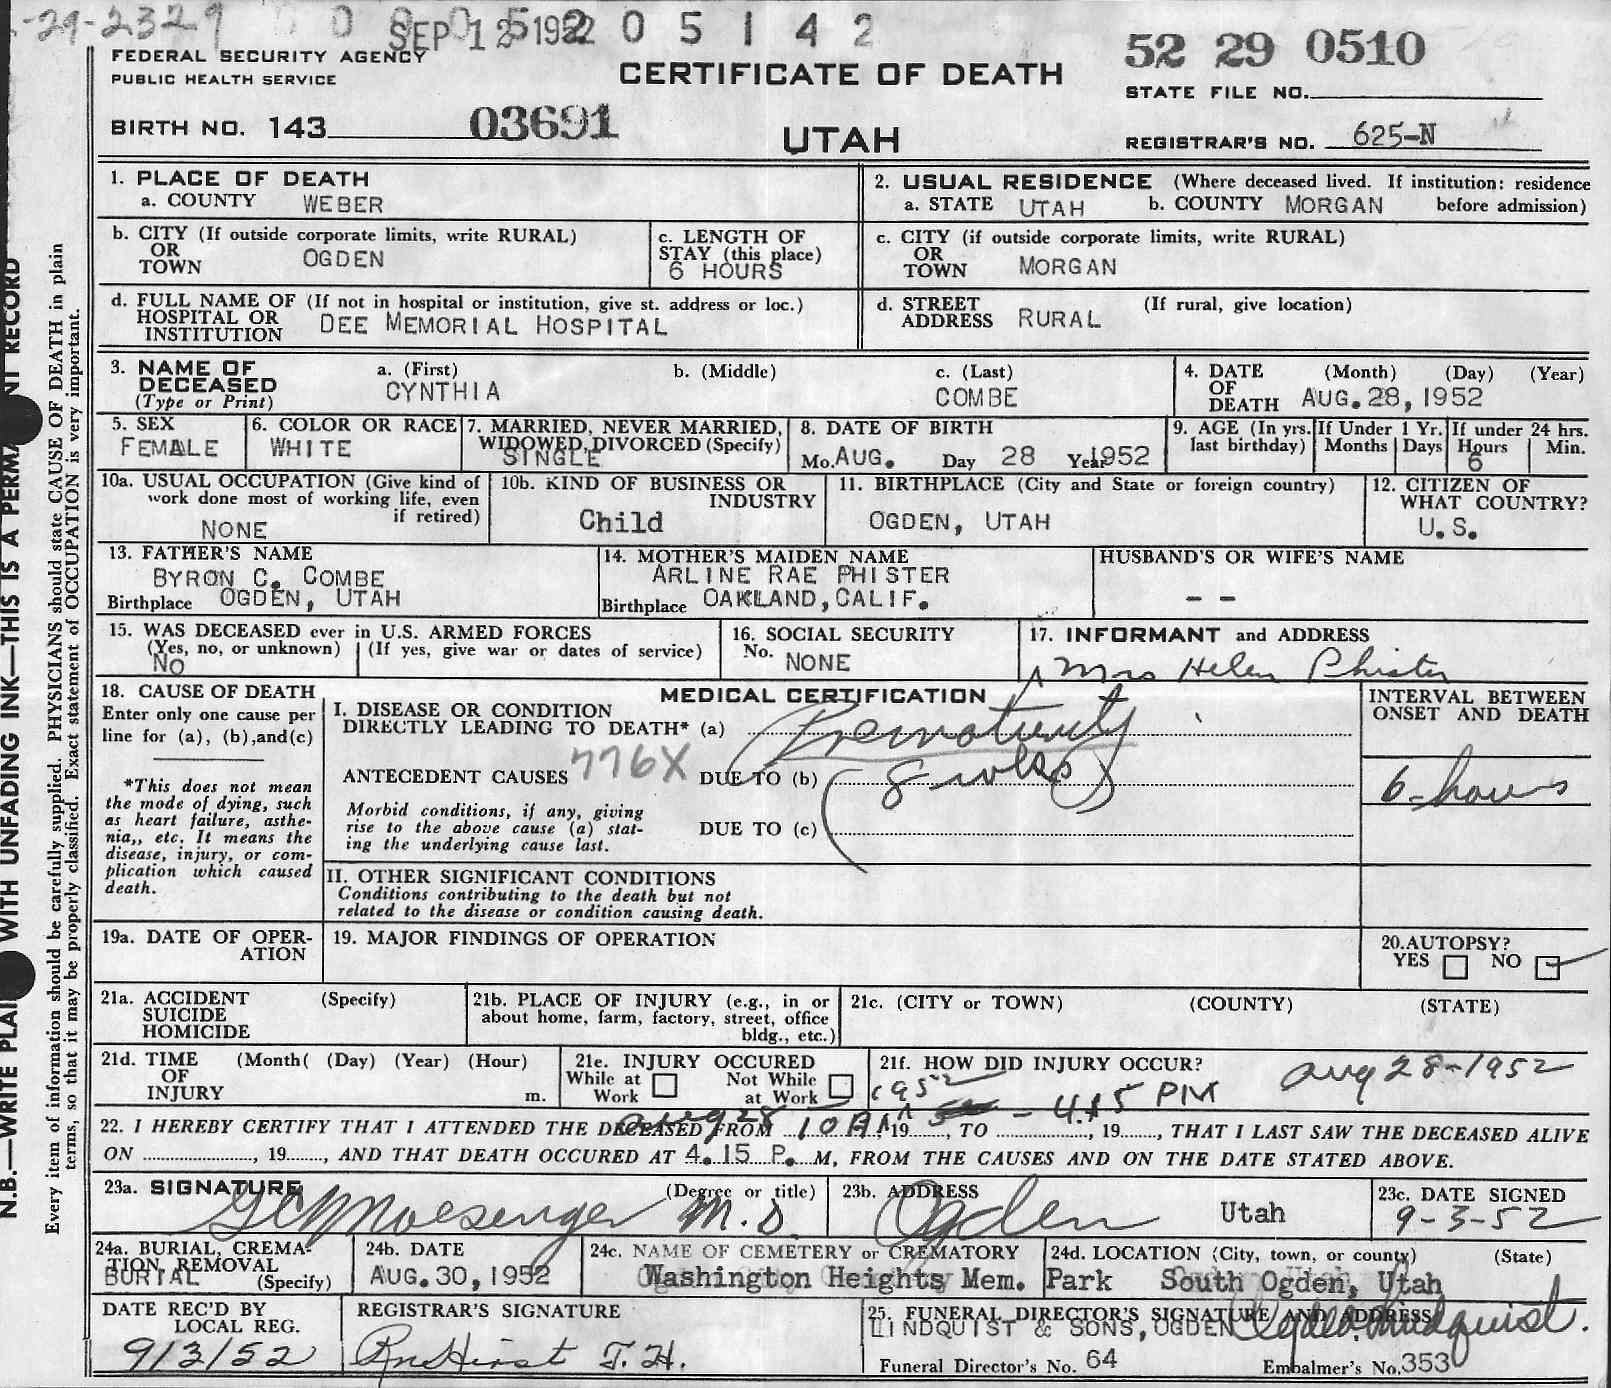 -29-2329
SEP 12 1952 0 5 1 4 2
52 29 0510
FEDERAL SECURITY AGENCY
PUBLIC HEALTH SERVICE
CERTIFICATE OF DEATH
STATE FILE NO.
BIRTH NO. 143 03691
UTAH
REGISTRAR'S NO. 625-N
1. PLACE OF DEATH
a. COUNTY WEBER
2. USUAL RESIDENCE (Where deceased lived. If institution: residence
a. STATE UTAH b. COUNTY MORGAN before admission)
b. CITY (If outside corporate limits, write RURAL)
OR
TOWN OGDEN
c. LENGTH OF
STAY (this place)
6 HOURS
c. CITY (if outside corporate limits, write RURAL)
OR
TOWN MORGAN
d. FULL NAME OF (If not in hospital or institution, give st. address or loc.)
HOSPITAL OR
INSTITUTION DEE MEMORIAL HOSPITAL
d. STREET (If rural, give location)
ADDRESS RURAL
3. NAME OF DECEASED
(Type or Print)
a. (First) b. (Middle) c. (Last)
CYNTHIA COMBE
4. DATE (Month) (Day) (Year)
OF
DEATH AUG. 28, 1952
5. SEX
FEMALE
6. COLOR OR RACE
WHITE
7. MARRIED, NEVER MARRIED,
WIDOWED, DIVORCED (Specify)
SINGLE
8. DATE OF BIRTH
Mo. AUG. Day 28 Year 1952
9. AGE (In yrs. last birthday)
If Under 1 Yr.
Months Days
If under 24 hrs.
Hours Min.
6
10a. USUAL OCCUPATION (Give kind of
work done most of working life, even
if retired)
NONE
10b. KIND OF BUSINESS OR
INDUSTRY
Child
11. BIRTHPLACE (City and State or foreign country)
OGDEN, UTAH
12. CITIZEN OF
WHAT COUNTRY?
U.S.
13. FATHER'S NAME
BYRON C. COMBE
Birthplace OGDEN, UTAH
14. MOTHER'S MAIDEN NAME
ARLINE RAE PHISTER
Birthplace OAKLAND, CALIF.
HUSBAND'S OR WIFE'S NAME
- -
15. WAS DECEASED ever in U.S. ARMED FORCES
(Yes, no, or unknown) (If yes, give war or dates of service)
NO
16. SOCIAL SECURITY
No. NONE
17. INFORMANT and ADDRESS
Mrs Helen Phister
18. CAUSE OF DEATH
Enter only one cause per
line for (a), (b),and(c)
*This does not mean
the mode of dying, such
as heart failure, asthe-
nia,, etc. It means the
disease, injury, or com-
plication which caused
death.
MEDICAL CERTIFICATION
I. DISEASE OR CONDITION
DIRECTLY LEADING TO DEATH* (a) Prematurity
ANTECEDENT CAUSES 776X DUE TO (b)
Morbid conditions, if any, giving
rise to the above cause (a) stat-
ing the underlying cause last.
DUE TO (c)
INTERVAL BETWEEN
ONSET AND DEATH
6-hours
II. OTHER SIGNIFICANT CONDITIONS
Conditions contributing to the death but not
related to the disease or condition causing death.
19a. DATE OF OPER-
ATION
19. MAJOR FINDINGS OF OPERATION
20. AUTOPSY?
YES NO
21a. ACCIDENT (Specify)
SUICIDE
HOMICIDE
21b. PLACE OF INJURY (e.g., in or
about home, farm, factory, street, office
bldg., etc.)
21c. (CITY or TOWN) (COUNTY) (STATE)
21d. TIME (Month( (Day) (Year) (Hour)
OF
INJURY m.
21e. INJURY OCCURED
While at Work Not While at Work
21f. HOW DID INJURY OCCUR?
1952 - 4.15 PM Aug 28-1952
22. I HEREBY CERTIFY THAT I ATTENDED THE DECEASED FROM Aug 28 10 AM, 19, TO , 19, THAT I LAST SAW THE DECEASED ALIVE
ON , 19, AND THAT DEATH OCCURED AT 4.15 P. M, FROM THE CAUSES AND ON THE DATE STATED ABOVE.
23a. SIGNATURE (Degree or title)
M.D.
23b. ADDRESS
Ogden Utah
23c. DATE SIGNED
9-3-52
24a. BURIAL, CREMA-
TION, REMOVAL
(Specify)
BURIAL
24b. DATE
AUG. 30, 1952
24c. NAME OF CEMETERY or CREMATORY
Washington Heights Mem. Park
24d. LOCATION (City, town, or county) (State)
South Ogden, Utah
DATE REC'D BY
LOCAL REG.
9/3/52
REGISTRAR'S SIGNATURE
25. FUNERAL DIRECTOR'S SIGNATURE AND ADDRESS
LINDQUIST & SONS, OGDEN
Funeral Director's No. 64 Embalmer's No. 353
Every item of information should be carefully supplied. PHYSICIANS should state CAUSE OF DEATH in plain
terms, so that it may be properly classified. Exact statement of OCCUPATION is very important.